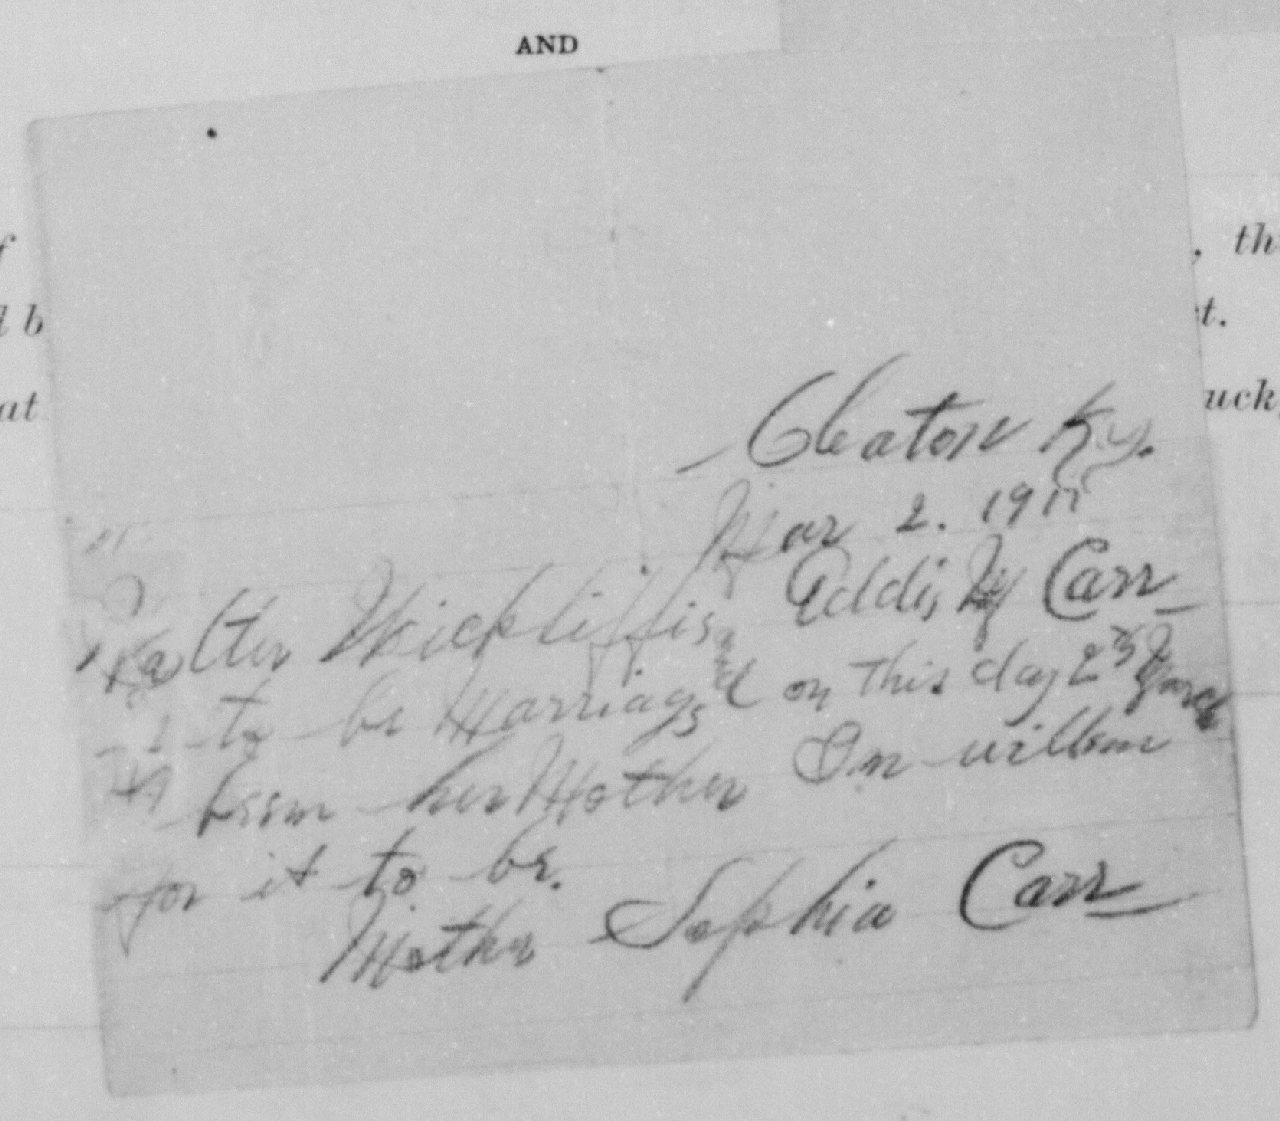 AND
f , th
d b t.
at uck
Cleaton Ky.
Mar 2. 1911
Walter Wickliffis and Eddis Carr
to be Marriagsd on this day 2 March
from her Mother I m willen
for it to be.
Mother Sophia Carr